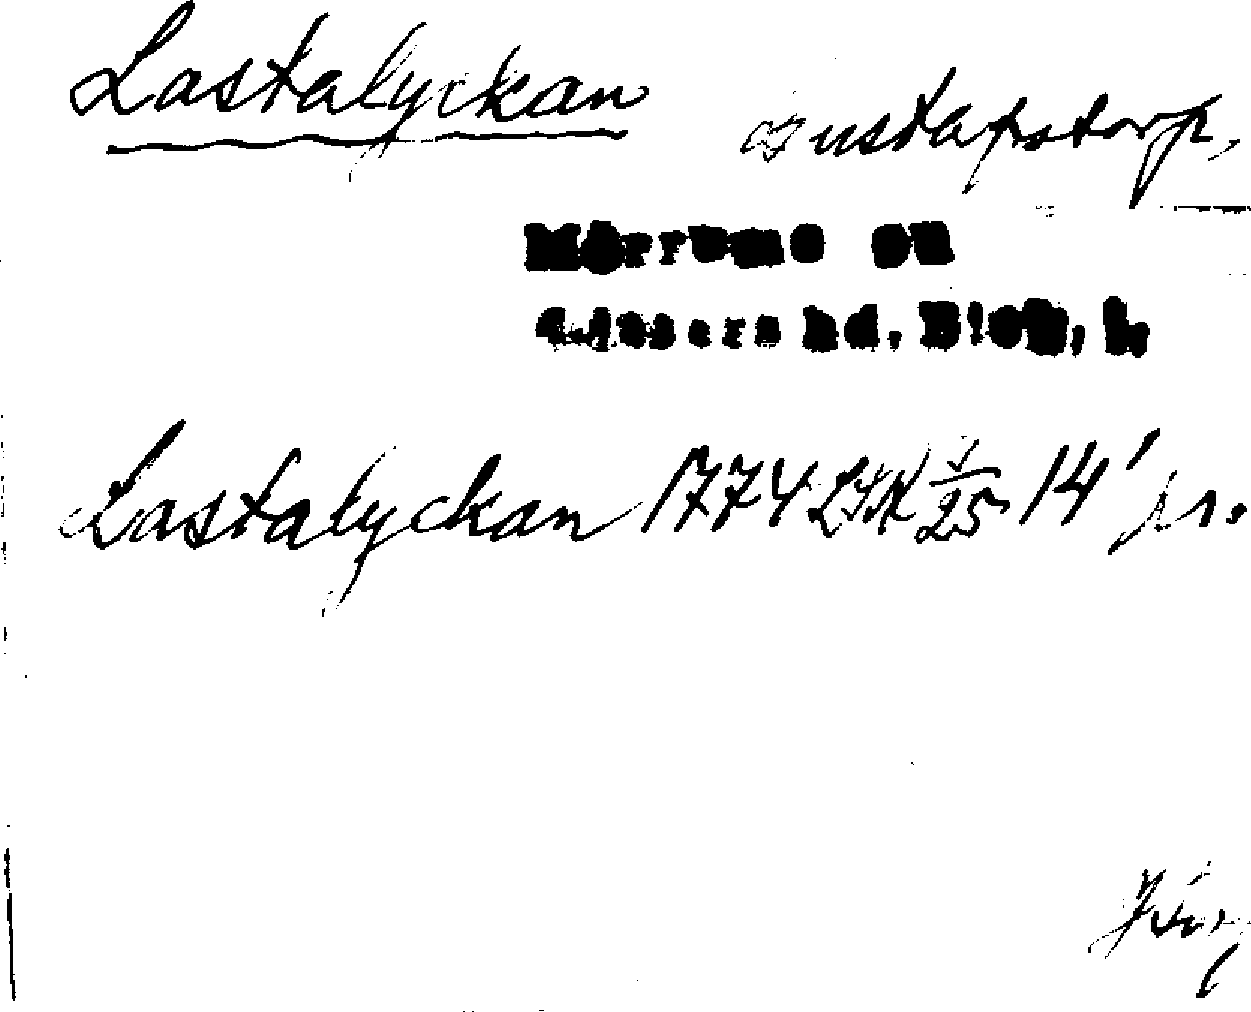 Lastalyckan Gustafstorp,
Mörrums sn
Listers hd. Blek. l.
Lastalyckan 1774 LSK 1/25 14' jr.